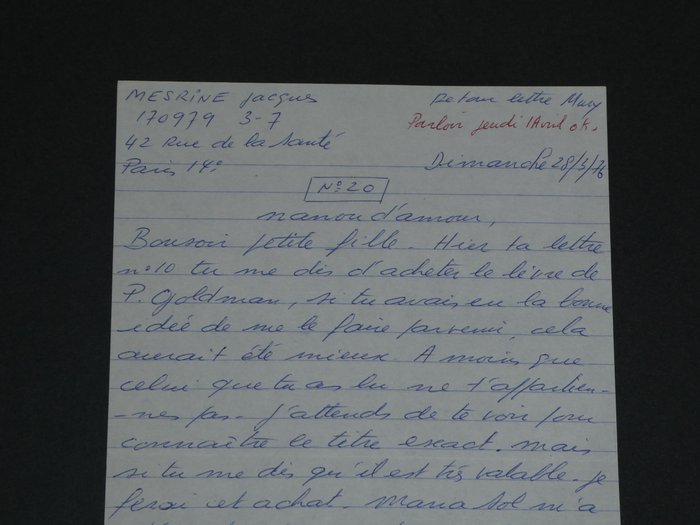 MESRINE Jacques
Retour lettre Mary
170979 3-7
Parloir jeudi 1 Avril O.K.
42 Rue de la Santé
Paris 14e
Dimanche 28/3/76
N° 20
nanou d'amour,
Bonsoir petite fille - Hier ta lettre
n°10 tu me dis d'acheter le livre de
P. Goldman, si tu avais eu la bonne
idée de me le faire parvenir, cela
aurait été mieux. A moins que
celui que tu as lu ne t'appartien-
-nes pas - j'attends de te voir pour
connaître le titre exact. mais
si tu me dis qu'il est très valable. je
ferai cet achat. Maria Sol m'a